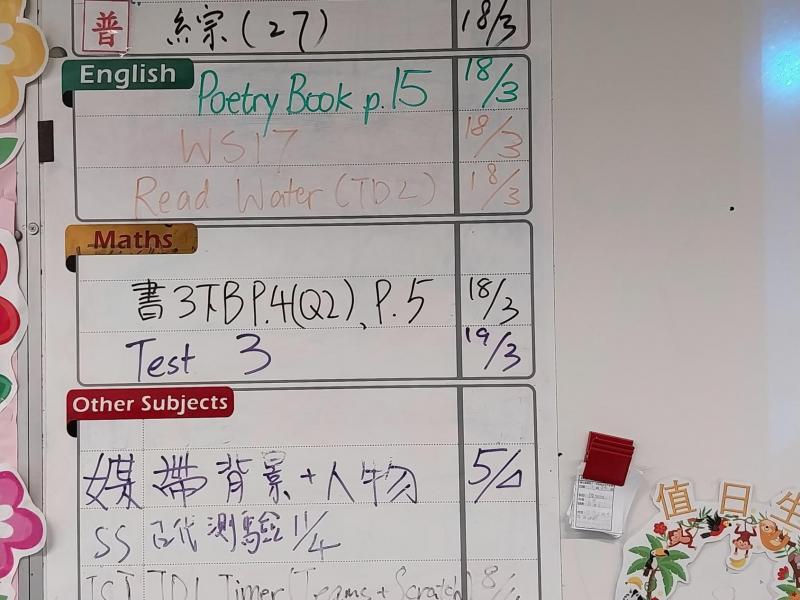 普 綜(27) 18/3
English
Poetry Book p.15 18/3
WS17 18/3
Read Water (TD2) 18/3
Maths
書3下B P.4(Q2)、P.5 18/3
Test 3 19/3
Other Subjects
媒 帶背景+人物 5/4
SS 古代測驗 11/4
ICT TD1 Timer (Teams + Scratch) 8/4
值日生